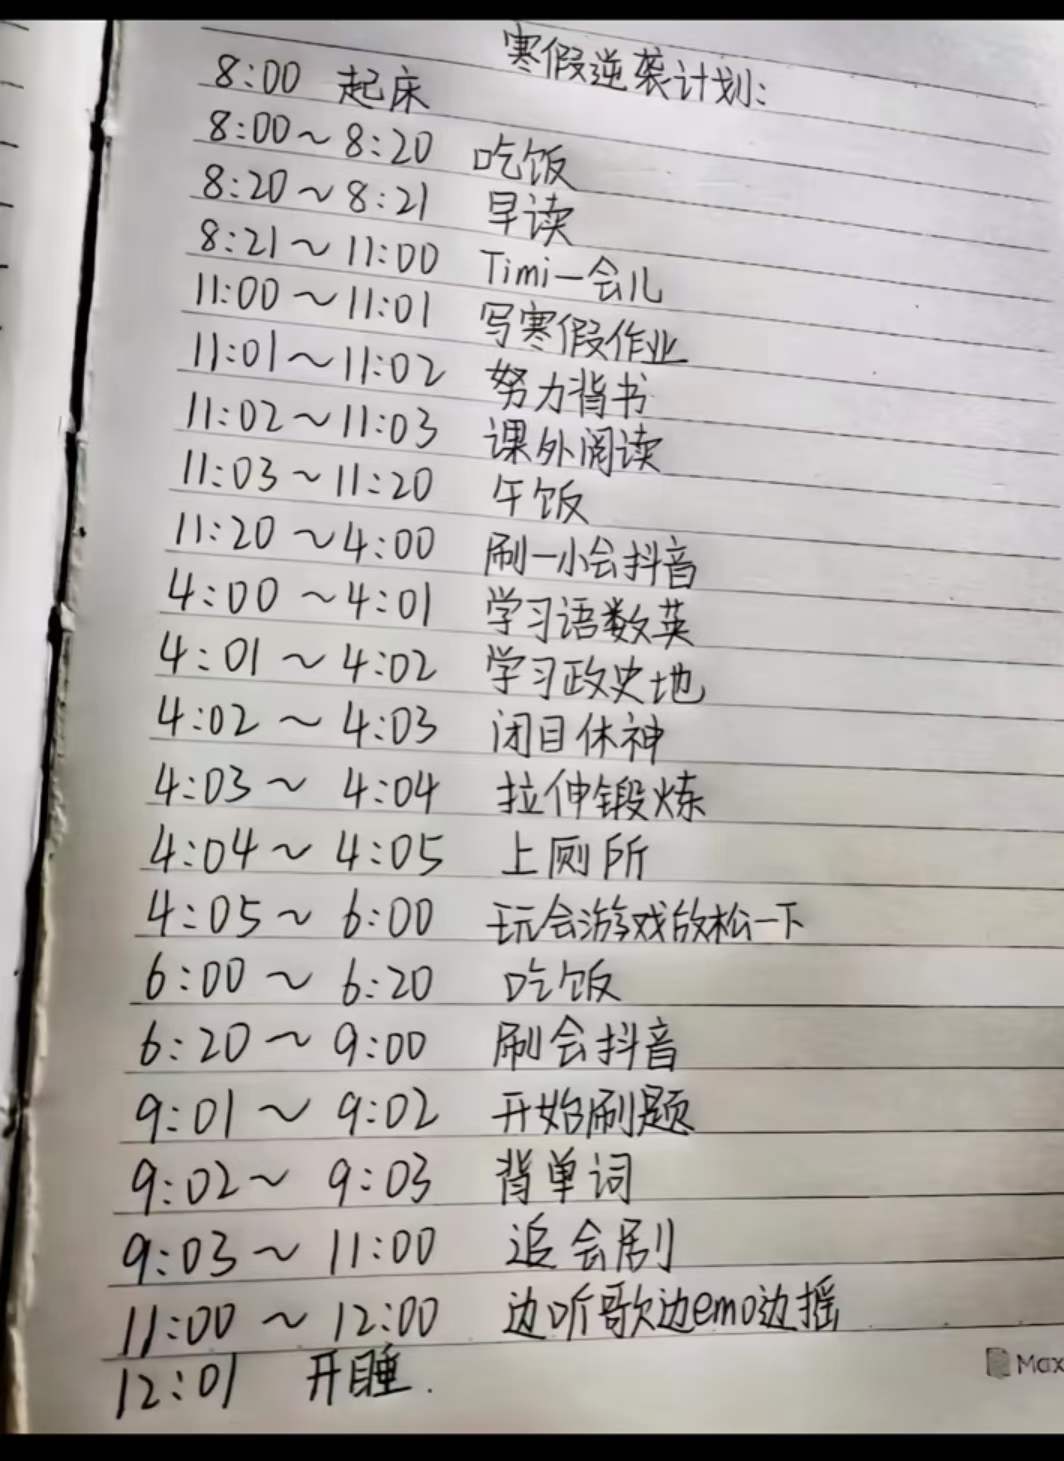 寒假逆袭计划:
8:00 起床
8:00~8:20 吃饭
8:20~8:21 早读
8:21~11:00 Timi一会儿
11:00~11:01 写寒假作业
11:01~11:02 努力背书
11:02~11:03 课外阅读
11:03~11:20 午饭
11:20~4:00 刷一小会抖音
4:00~4:01 学习语数英
4:01~4:02 学习政史地
4:02~4:03 闭目休神
4:03~4:04 拉伸锻炼
4:04~4:05 上厕所
4:05~6:00 玩会游戏放松一下
6:00~6:20 吃饭
6:20~9:00 刷会抖音
9:01~9:02 开始刷题
9:02~9:03 背单词
9:03~11:00 追会剧
11:00~12:00 边听歌边emo边摇
12:01 开睡.
Max